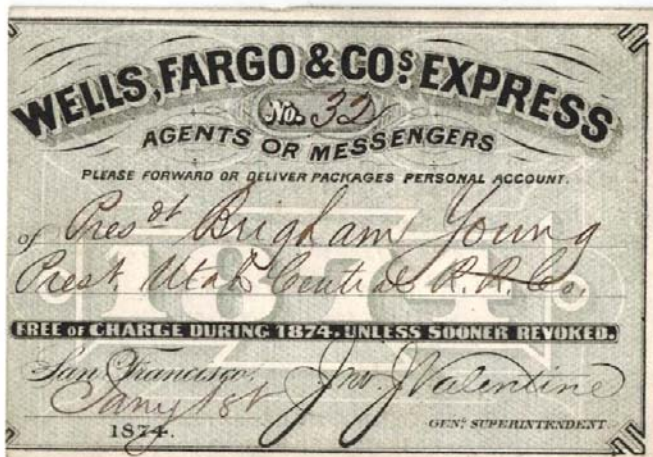 WELLS, FARGO & COS. EXPRESS
No. 32
AGENTS OR MESSENGERS
PLEASE FORWARD OR DELIVER PACKAGES PERSONAL ACCOUNT.
of Presdt Brigham Young
Prest. Utah Central R.R. Co.
1874
FREE OF CHARGE DURING 1874. UNLESS SOONER REVOKED.
San Francisco,
Jany 1st
1874.
Jno. J. Valentine
GENL SUPERINTENDENT